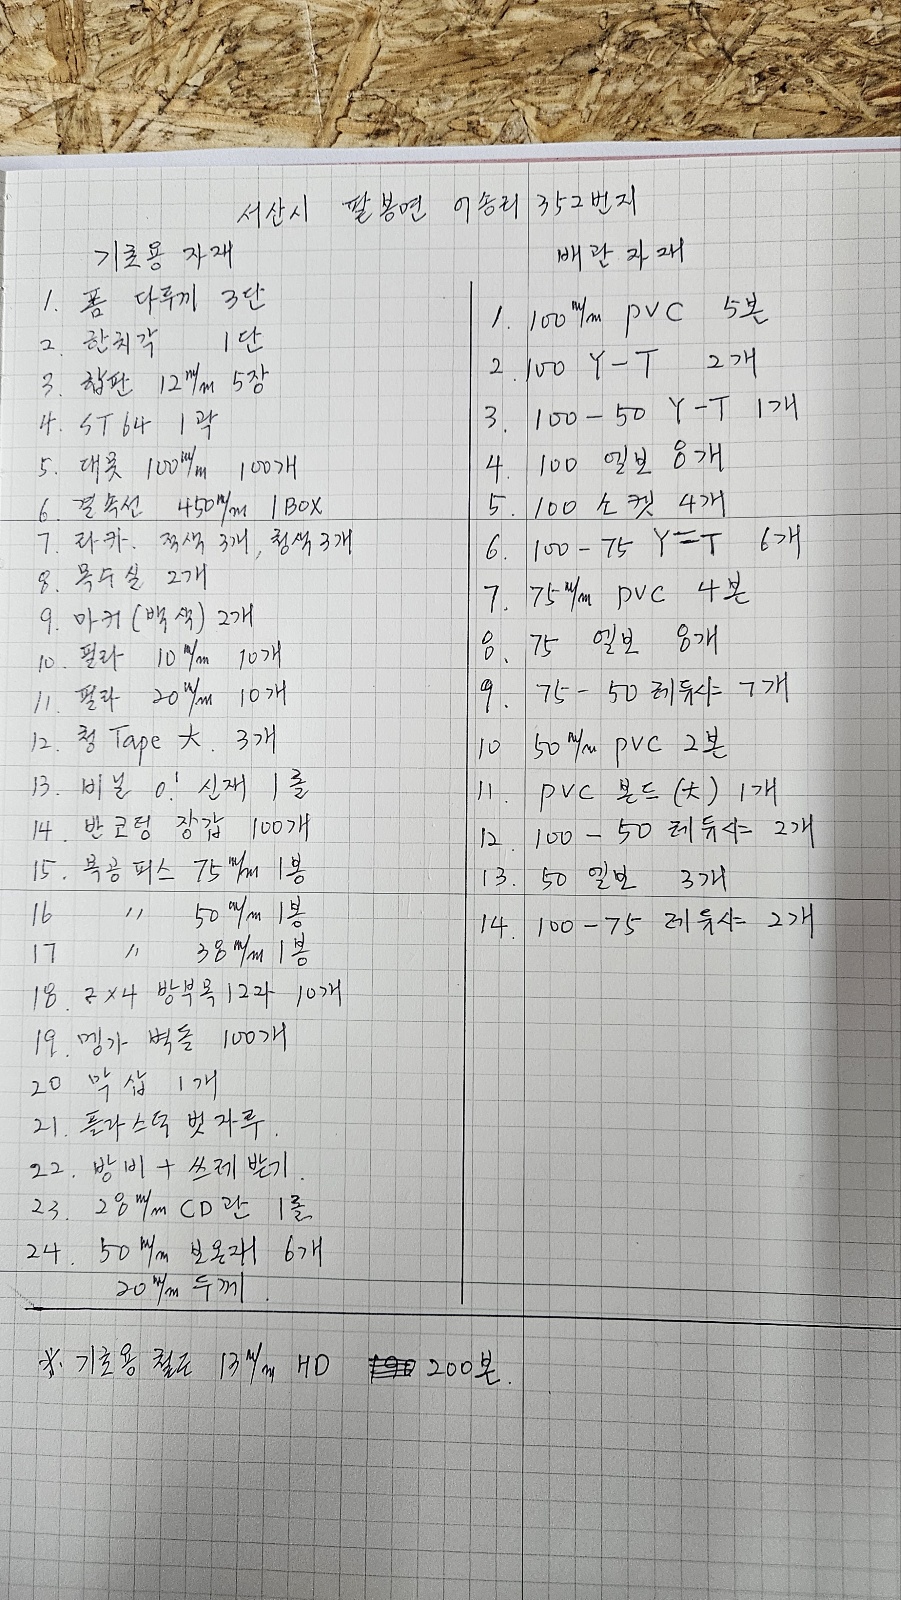 서산시 팔봉면 어송리 352번지
기초용 자재
1. 폼 다루끼 3단
2. 한치각 1단
3. 합판 12m/m 5장
4. ST64 1곽
5. 대못 100m/m 100개
6. 결속선 450m/m 1BOX
7. 라카. 적색 3개, 청색 3개
8. 목수실 2개
9. 마커 (백색) 2개
10. 필라 10m/m 10개
11. 필라 20m/m 10개
12. 청 Tape 大. 3개
13. 비닐 0.1 신재 1롤
14. 반코팅 장갑 100개
15. 목공피스 75m/m 1봉
16 〃 50m/m 1봉
17 〃 38m/m 1봉
18. 2×4 방부목 12자 10개
19. 멩가 벽돌 100개
20 막삽 1개
21. 플라스틱 빗자루.
22. 방비 + 쓰레받기.
23. 28m/m CD관 1롤
24. 50m/m 보온재 6개
20m/m 두께.
배관자재
1. 100m/m PVC 5본
2. 100 Y-T 2개
3. 100-50 Y-T 1개
4. 100 엘보 8개
5. 100 소켓 4개
6. 100-75 Y=T 6개
7. 75m/m PVC 4본
8. 75 엘보 8개
9. 75-50 레듀샤 7개
10 50m/m PVC 2본
11. PVC 본드 (大) 1개
12. 100-50 레듀샤 2개
13. 50 엘보 3개
14. 100-75 레듀샤 2개
※. 기초용 철근 13m/m HD 200본.